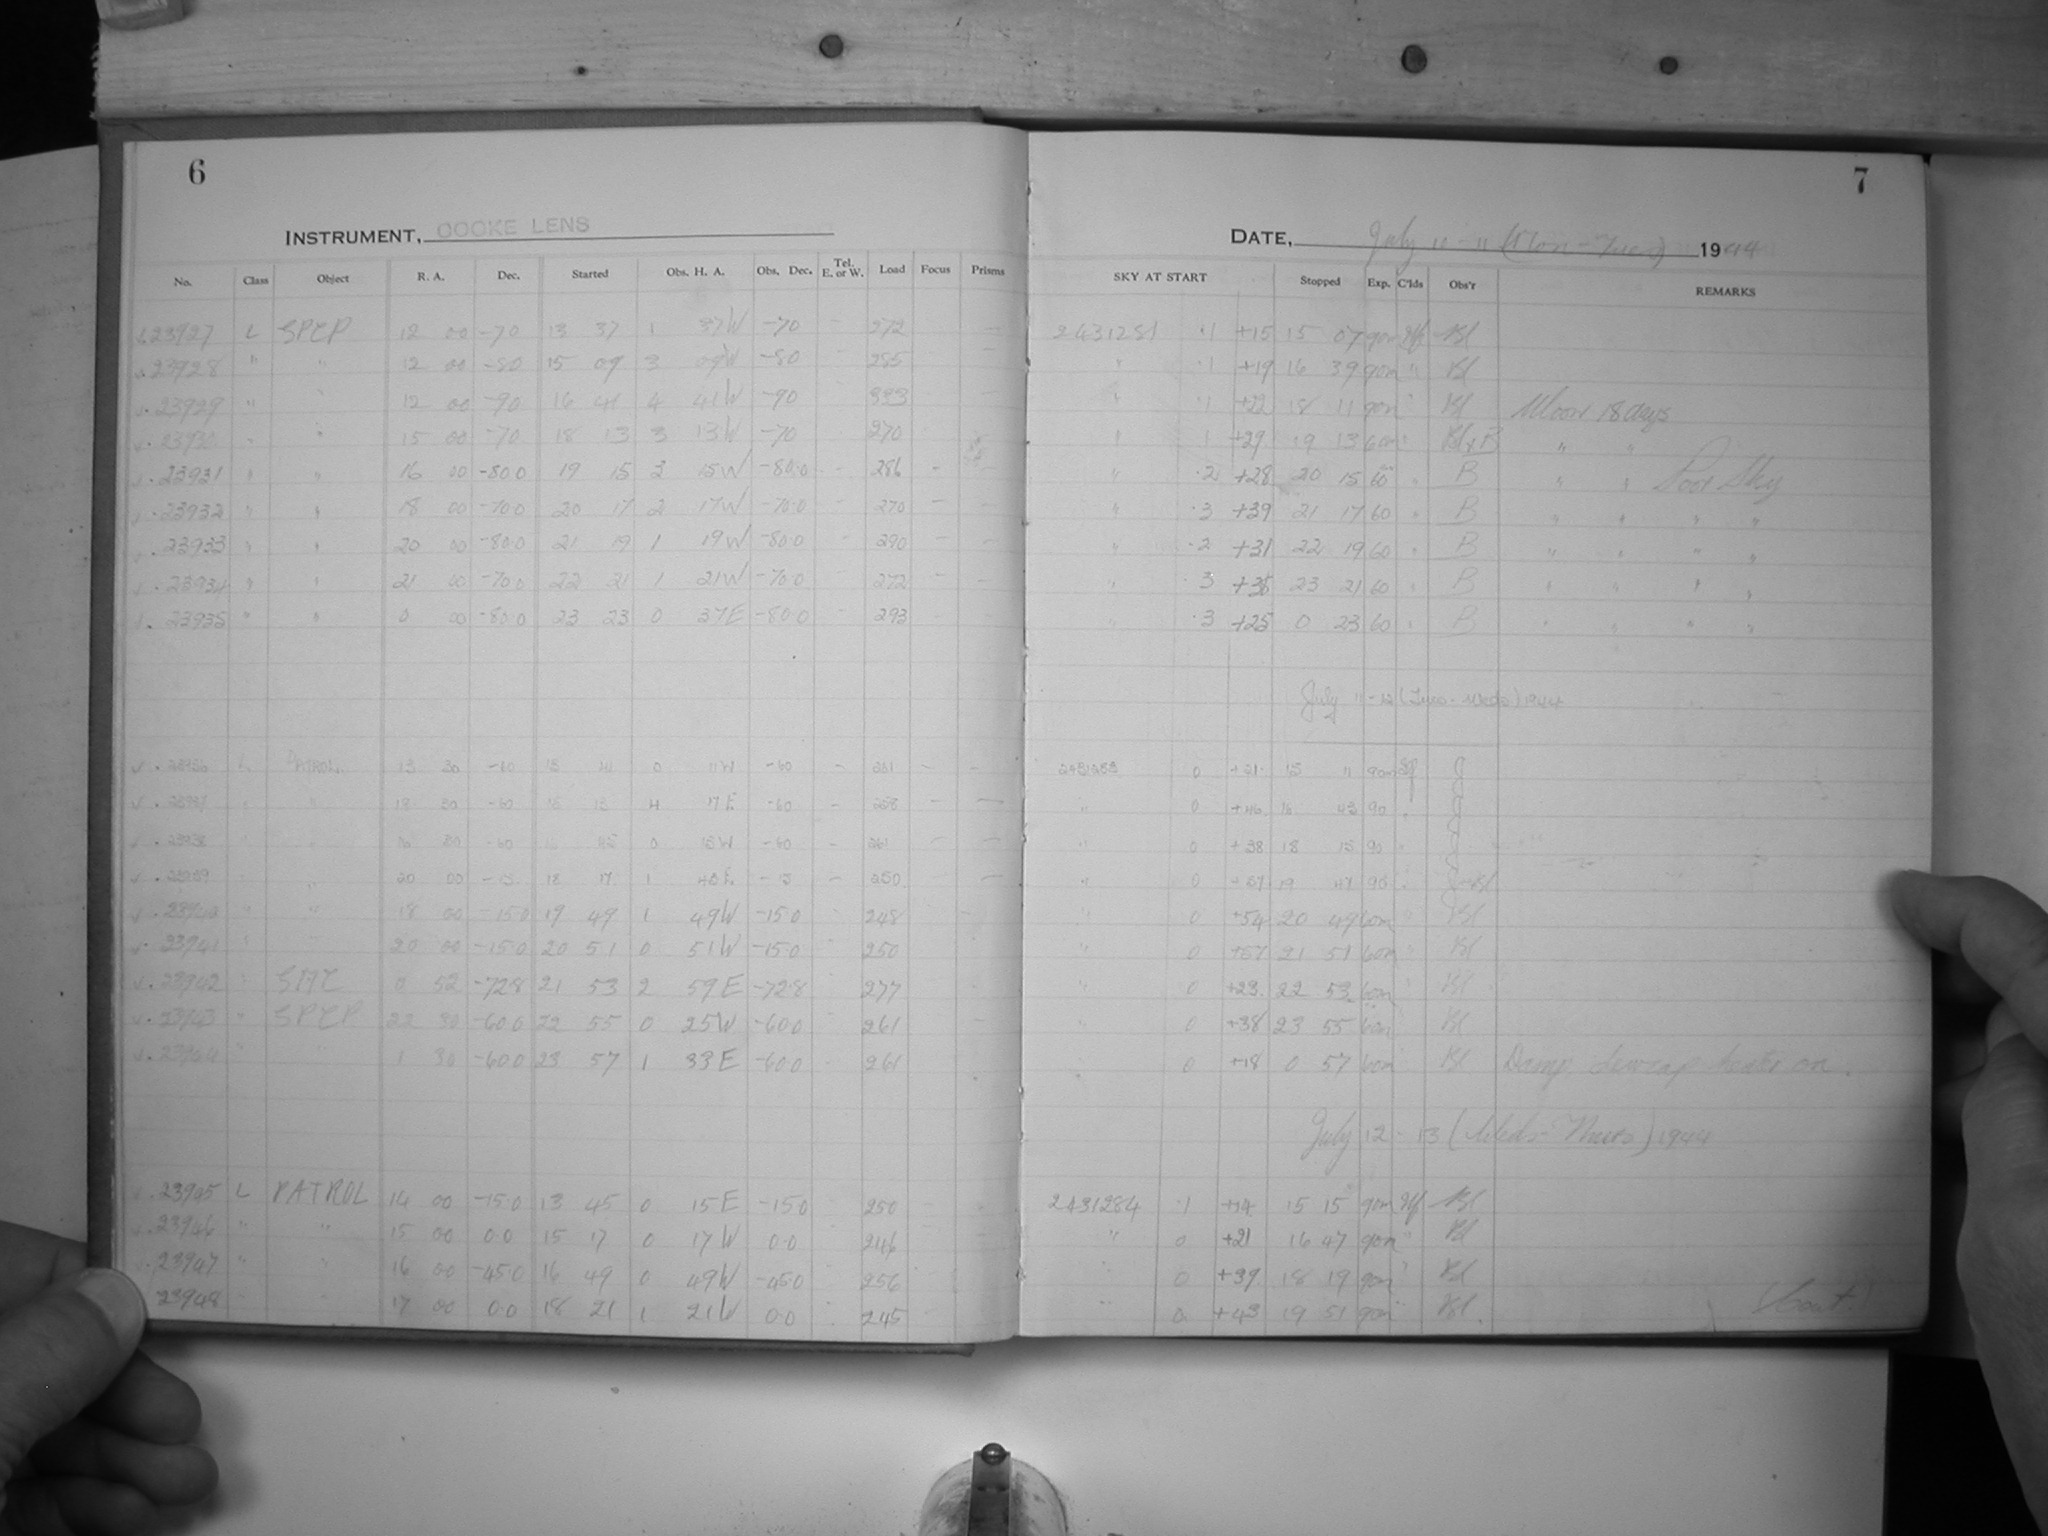 6
7
INSTRUMENT, COOKE LENS
DATE, July 10-11 (Mon-Tues) 1944
No. Class Object R. A. Dec. Started Obs. H. A. Obs. Dec. Tel. E. or W. Load Focus Prisms SKY AT START Stopped Exp. C'lds Obs'r REMARKS
23927 L SPCP 12 00 -70 13 37 1 37W -70 - 272 - 2431281 ·1 +15 15 07 90m Bl
23928 " " 12 00 -80 15 09 3 09W -80 - 285 - " ·1 +19 16 39 90m " Bl
23929 " " 12 00 -90 16 41 4 41W -90 - 333 - " ·1 +22 18 11 90m " Bl Moon 18 days
23930 " " 15 00 -70 18 13 3 13W -70 - 270 - " 1 +29 19 13 60m " Bl & B " "
23931 " " 16 00 -80.0 19 15 3 15W -80.0 - 286 - - " ·2 +28 20 15 60 " B " " Poor Sky
23932 " " 18 00 -70.0 20 17 2 17W -70.0 - 270 - - " ·3 +39 21 17 60 " B " " " "
23933 " " 20 00 -80.0 21 19 1 19W -80.0 - 290 - - " ·2 +31 22 19 60 " B " " " "
23934 " " 21 00 -70.0 22 21 1 21W -70.0 - 272 - - " ·3 +36 23 21 60 " B " " " "
23935 " " 0 00 -80.0 23 23 0 37E -80.0 - 293 - - " ·3 +25 0 23 60 " B " " " "
July 11-12 (Tues-Weds) 1944
23936 L PATROL 13 30 -60 13 41 0 11W -60 - 261 - - 2431283 0 +21 15 11 90m J
23937 " " 19 30 -60 15 13 4 17E -60 - 258 - - " 0 +46 16 43 90 " J
23938 " " 16 30 -60 16 45 0 15W -60 261 - - " 0 +38 18 15 90 " J
23939 " " 20 00 -15 18 17 1 43E -15 - 250 - - " 0 19 47 90 " J-Bl
23940 " " 18 00 -15.0 19 49 1 49W -15.0 248 - " 0 +54 20 49 60m " Bl
23941 " " 20 00 -15.0 20 51 0 51W -15.0 250 - " 0 +57 21 51 60m " Bl
23942 " SMC 0 52 -72.8 21 53 2 59E -72.8 277 - " 0 +23 22 53 60m " Bl
23943 " SPCP 22 30 -60.0 22 55 0 25W -60.0 261 - " 0 +38 23 55 60m " Bl
23944 " " 1 30 -60.0 23 57 1 33E -60.0 261 " 0 +18 0 57 60m Bl Damp. Dewcap heater on.
July 12-13 (Weds-Thurs) 1944
23945 L PATROL 14 00 -15.0 13 45 0 15E -15.0 250 - 2431284 ·1 +14 15 15 90m Bl
23946 " " 15 00 0.0 15 17 0 17W 0.0 246 - " 0 +21 16 47 90m " Bl
23947 " " 16 00 -45.0 16 49 0 49W -45.0 256 " 0 +39 18 19 90m " Bl
23948 " " 17 00 0.0 18 21 1 21W 0.0 245 " 0 +43 19 51 90m " Bl (Cont.)